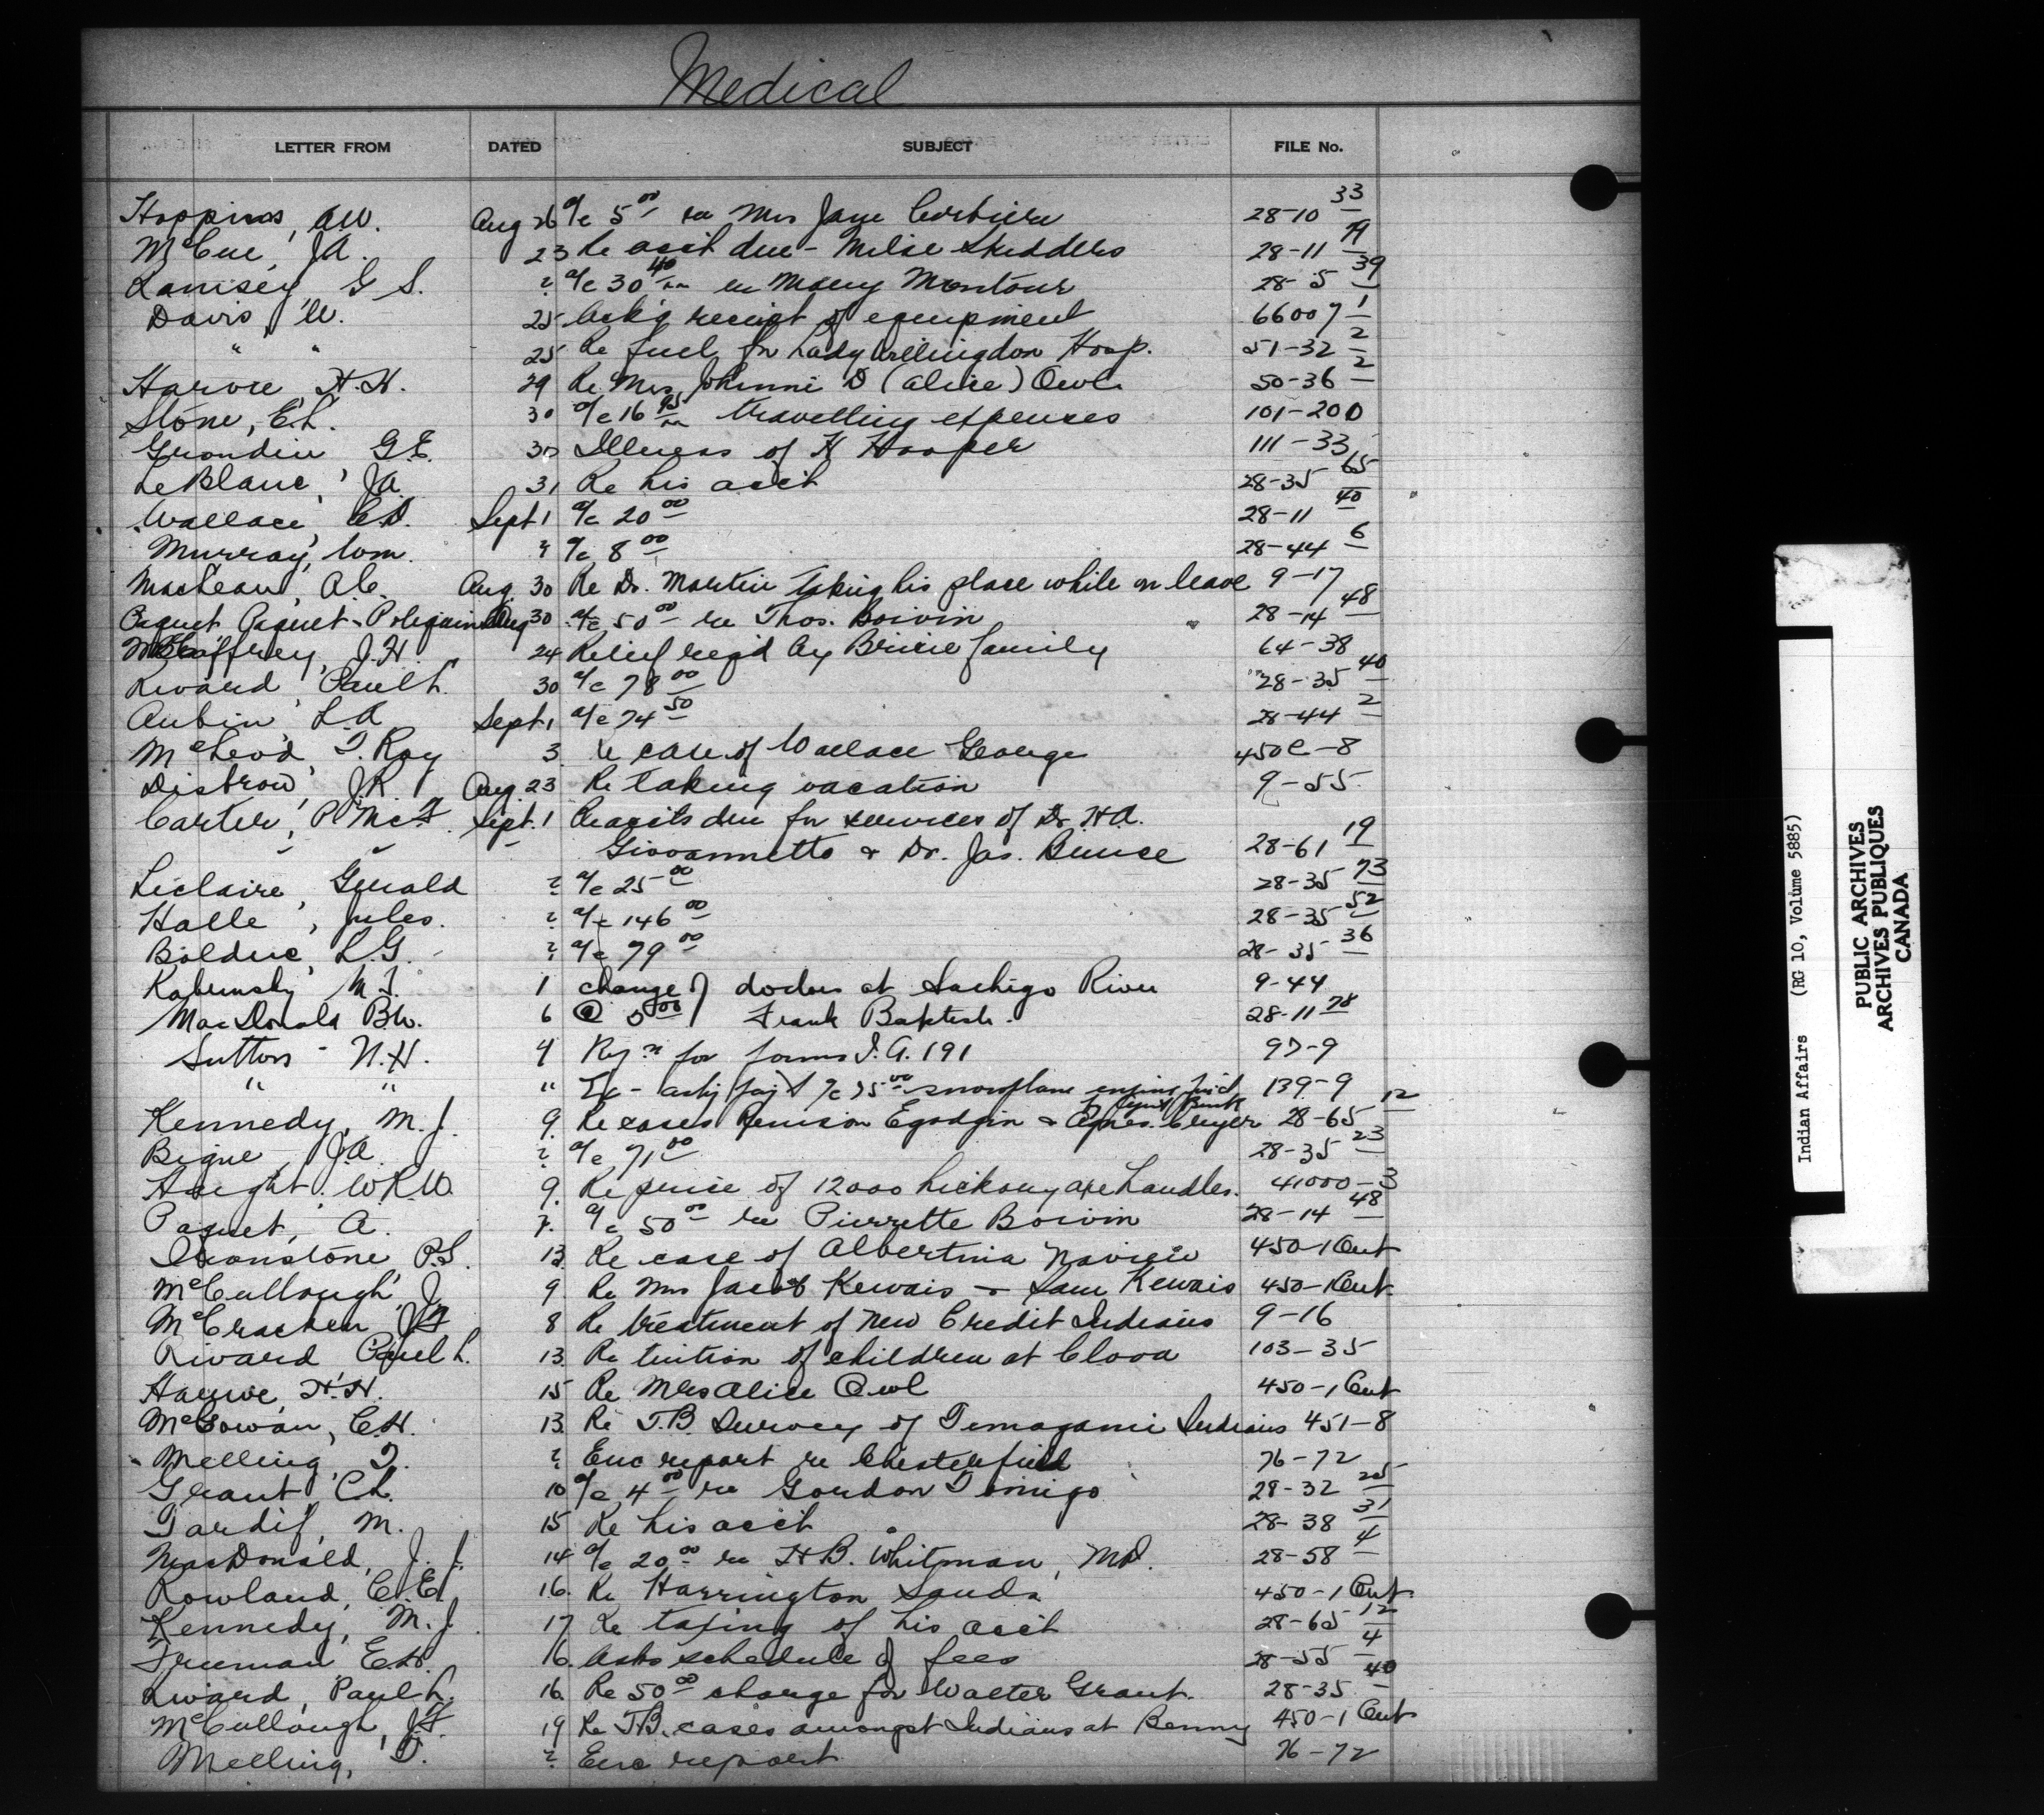 Medical
LETTER FROM DATED SUBJECT FILE No.
Hoppins, A.W. Aug 26 a/c 5 00 re Mrs Jane Corbiere 28-10 33
McCue, J.A. 23 Re acct due - Milse Skidders 28-11 79
Ramsey, G S. ? a/c 30 40 re Mary Montour 28-5 39
Davis, W. 25 Ack'g receipt of equipment 66007 1
" " 25 Re fuel for Lady Willingdon Hosp. 51-32 2
Harvie, H.H. 29 Re Mrs Johnni D (Alice) Owl 50-36 2
Stone, E.L. 30 a/c 16 95 travelling expenses 101-200
Grondin G.E. 30 Illness of H Hooper 111-33
LeBlanc, J.A. 31 Re his acct 28-35 65
Wallace, C.D. Sept 1 a/c 20 00 28-11 40
Murray, Wm. ? a/c 8 00 28-44 6
MacLean, A.C. Aug. 30 Re Dr. Martin taking his place while on leave 9-17
Paquet Paquet-Poliquin Aug 30 a/c 50 00 re Thos. Boivin 28-14 48
McCaffrey, J.H. 24 Relief reqd by family 64-38
Rivard, Paul L. 30 a/c 78 00 28-35 40
Aubin, L.A. Sept 1 a/c 74 50 28-44 2
McLeod, T. Roy 3 re case of Wallace George 450C-8
Distrow, J.R. Aug. 23 Re taking vacation 9-55
Carter, P. McF. Sept. 1 Re accts due for services of Dr. H.A.
" " - Giovannetto & Dr. Jas. Bunce 28-61 19
Leclaire, Gerald ? a/c 25 00 28-35 73
Halle, Jules. ? a/c 146 00 28-35 52
Bolduc, L.G. ? a/c 79 00 28-35 36
Rabinsky M.T. 1 change of doctors at Sachigo River 9-44
MacDonald B.W. 6 @ 5 00 Frank Baptiste. 28-11 78
Sutton - N.H. 4 Rqn for forms I.A. 191 97-9
" " " a/c 75 00 snowplane engine 139-9
Kennedy, M.J. 9. Re cases & 28-65 12
Bigue, J.A. ? a/c 71 00 28-35 23
Haight. W.R.W. 9. Re price of 12000 hickory axe handles. 41000-3
Paquet, A. 7. a/c 50 00 re Pierrette Boivin 28-14 48
Ironstone P.S. 13. Re case of Albertina 450-1 Ont
McCullough, J. 9 Re Mrs Jacob Kewais - Sam Kewais 450-1 Ont.
McCracken J.F. 8 Re treatment of New Credit Indians 9-16
Rivard Paul L. 13. Re tuition of children at Clova 103-35
Harvie, H.H. 15 Re Mrs Alice Owl 450-1 Ont
McGowan, C.H. 13. Re T.B. Survey of Temagami Indians 451-8
Melling, T. ? Enc report re Chesterfield 76-72
Grant, C.L. 10 a/c 4 00 re Gordon 28-32 25
Tardif, M. 15 Re his acct 28-38 31
MacDonald, J.J. 14 a/c 20 00 re H.B. Whitman, M.D. 28-58 4
Rowland, C.E. 16. Re Harrington Sands 450-1 Ont
Kennedy, M.J. 17 Re taxing of his acct 28-65 12
Freeman E.H. 16. Asks schedule of fees 28-55 4
Rivard, Paul L. 16. Re 50 00 charge for Walter Grant. 28-35 40
McCullough, J.F. 19 Re T.B. cases amongst Indians at Benny 450-1 Ont
Melling, T. ? Enc report 76-72
Indian Affairs (RG 10, Volume 5885)
PUBLIC ARCHIVES
ARCHIVES PUBLIQUES
CANADA